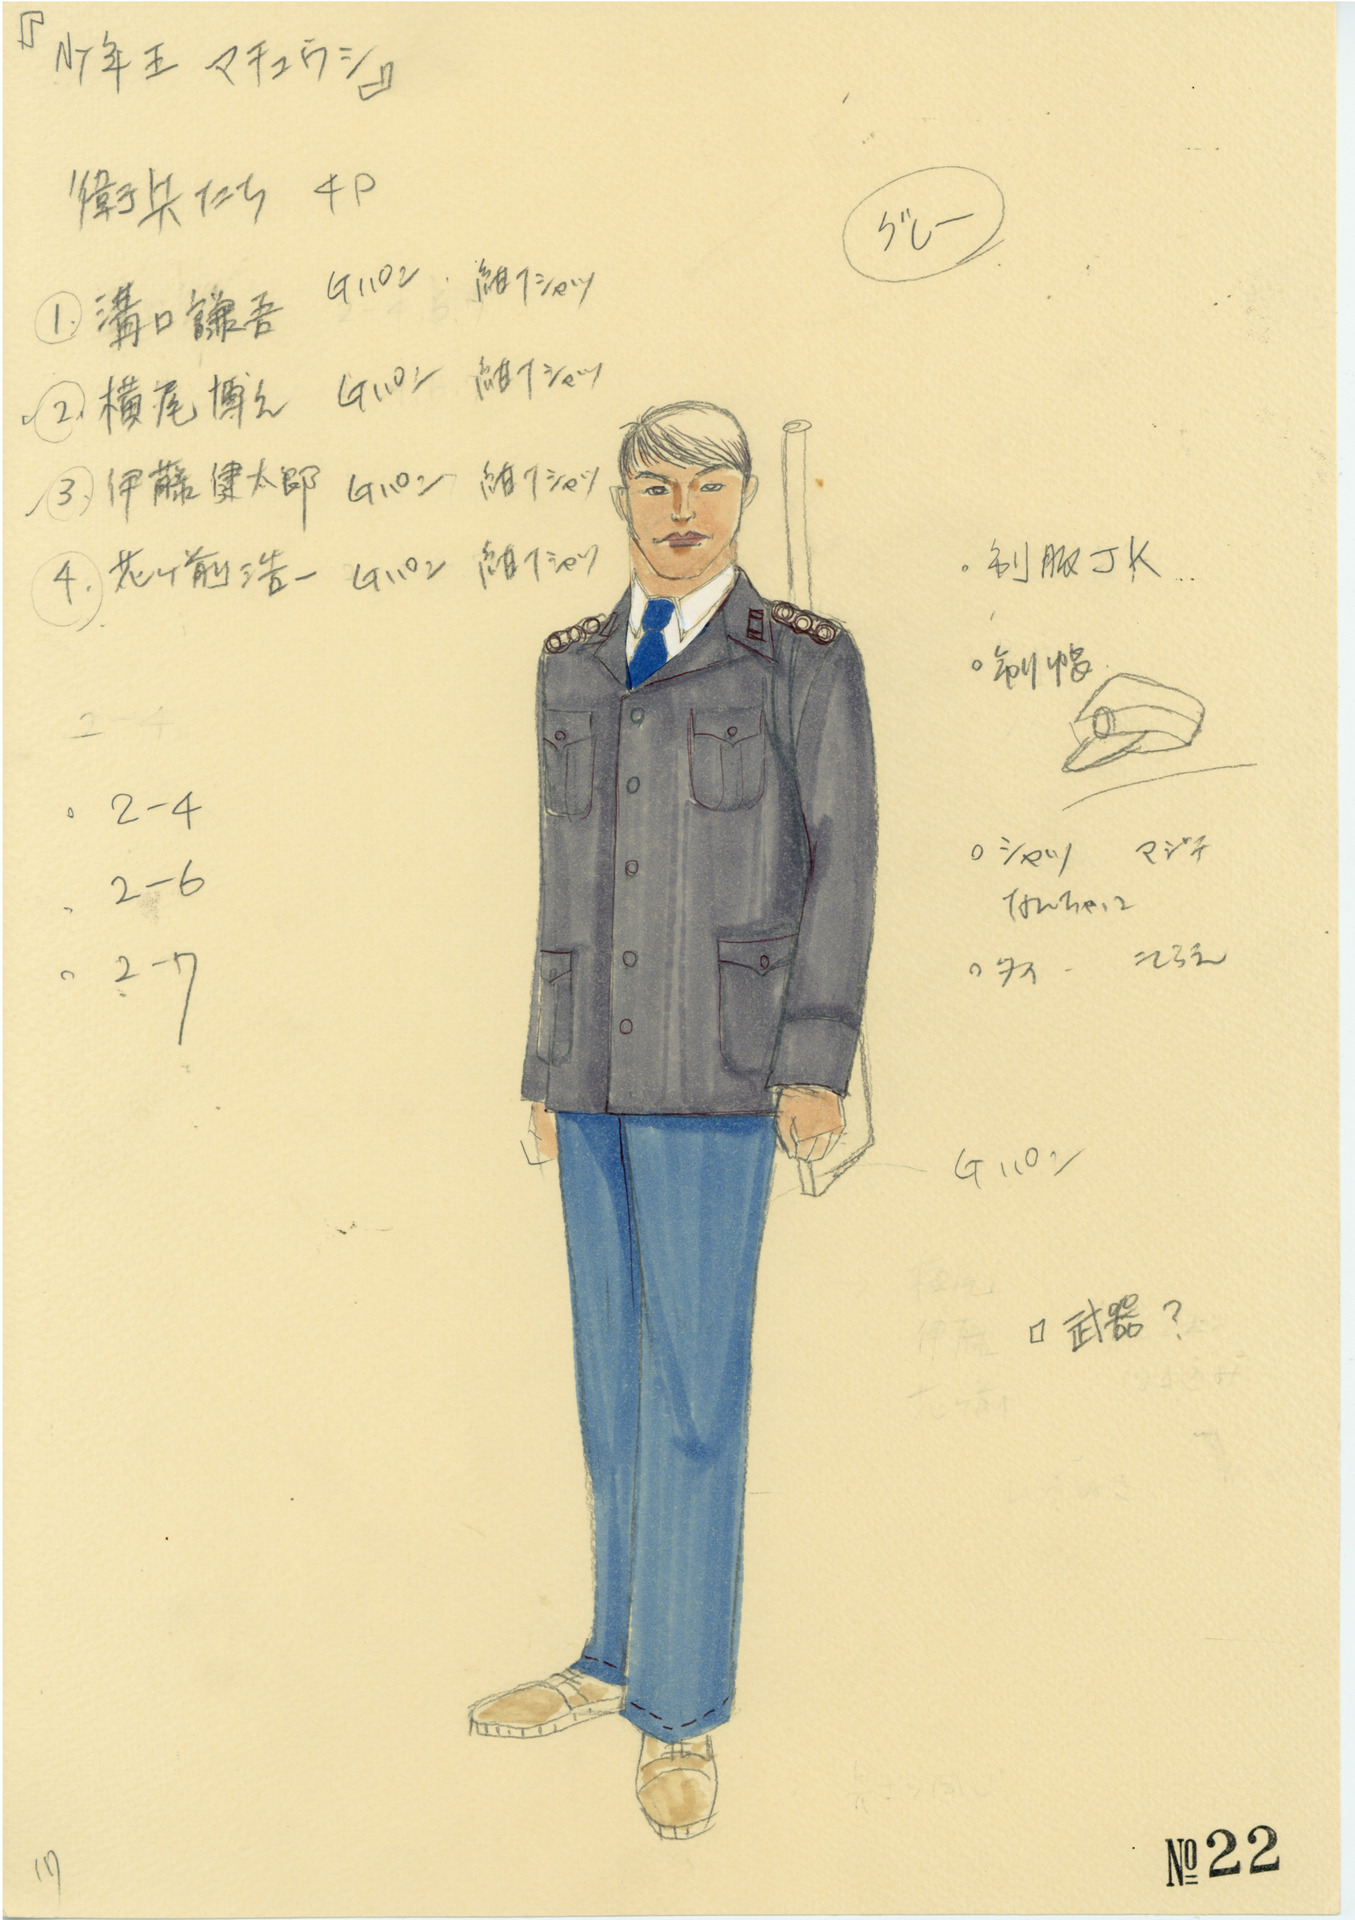 『少年王 マチュウシ』
衛兵たち 4P
グレー
①. 溝口謙吾 Gパン 紺Tシャツ
②. 横尾博之 Gパン 紺Tシャツ
③. 伊藤健太郎 Gパン 紺Tシャツ
④. 花ヶ前浩一 Gパン 紺Tシャツ
2-4
・2-4
・2-6
・2-7
・制服JK
・制帽
・シャツ マジテ
なんちゃって
・タイ
Gパン
伊藤
花ヶ前
□ 武器?
17
№22